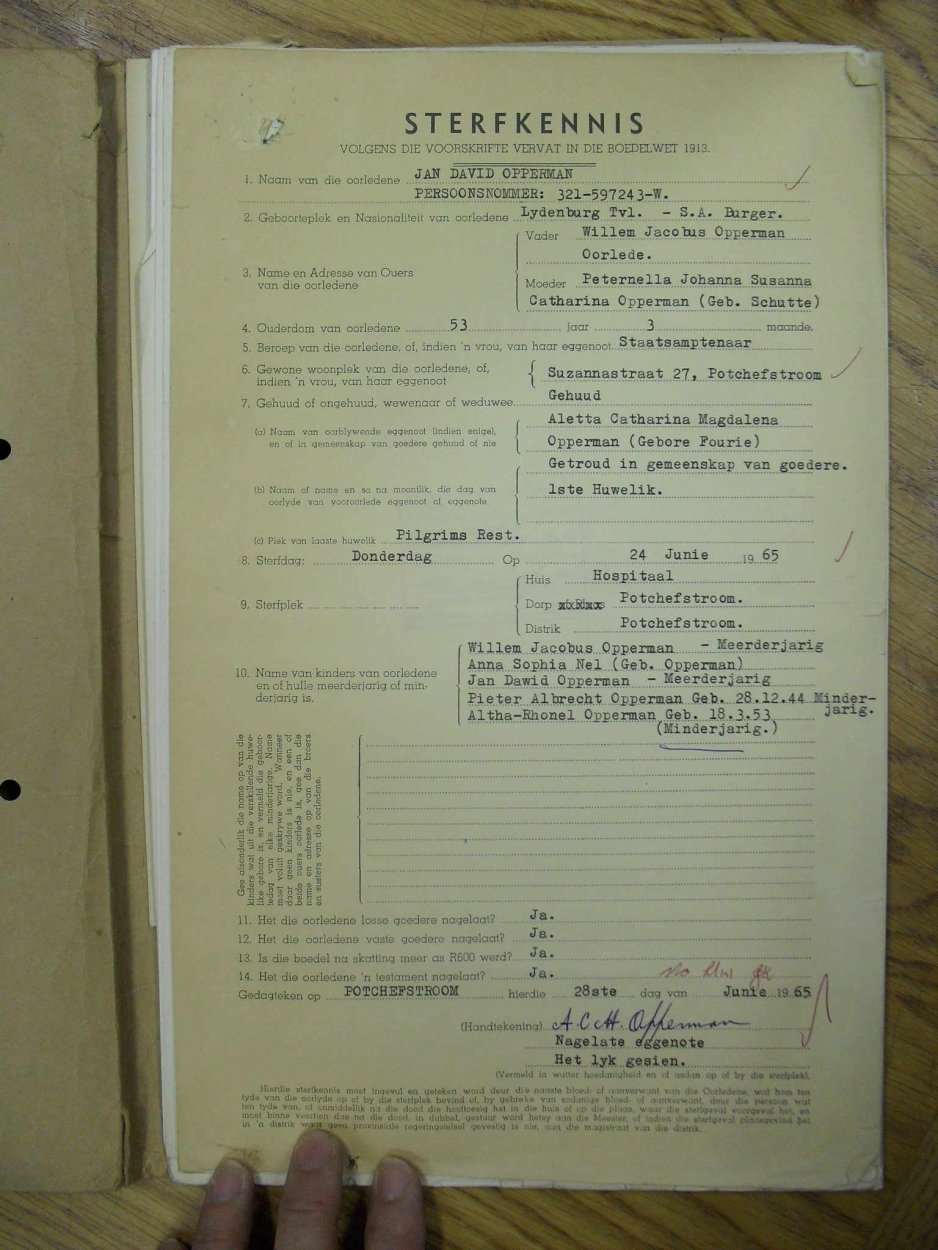 STERFKENNIS
VOLGENS DIE VOORSKRIFTE VERVAT IN DIE BOEDELWET 1913.
1. Naam van die oorledene JAN DAVID OPPERMAN
PERSOONSNOMMER: 321-597243-W.
2. Geboorteplek en Nasionaliteit van oorledene Lydenburg Tvl. - S.A. Burger.
3. Name en Adresse van Ouers van die oorledene
Vader Willem Jacobus Opperman
Oorlede.
Moeder Peternella Johanna Susanna
Catharina Opperman (Geb. Schutte)
4. Ouderdom van oorledene 53 jaar 3 maande.
5. Beroep van die oorledene, of, indien 'n vrou, van haar eggenoot Staatsamptenaar
6. Gewone woonplek van die oorledene, of,
indien 'n vrou, van haar eggenoot
Suzannastraat 27, Potchefstroom
7. Gehuud of ongehuud, wewenaar of weduwee Gehuud
(a) Naam van oorblywende eggenoot (indien enige),
en of in gemeenskap van goedere gehuud of nie
Aletta Catharina Magdalena
Opperman (Gebore Fourie)
Getroud in gemeenskap van goedere.
(b) Naam of name en so na moontlik, die dag van
oorlyde van vooroorlede eggenoot of eggenote
1ste Huwelik.
(c) Plek van laaste huwelik Pilgrims Rest.
8. Sterfdag: Donderdag Op 24 Junie 1965
9. Sterfplek
Huis Hospitaal
Dorp Potchefstroom.
Distrik Potchefstroom.
10. Name van kinders van oorledene
en of hulle meerderjarig of min-
derjarig is.
Willem Jacobus Opperman - Meerderjarig
Anna Sophia Nel (Geb. Opperman)
Jan Dawid Opperman - Meerderjarig
Pieter Albrecht Opperman Geb. 28.12.44 Minder-
jarig.
Altha-Rhonel Opperman Geb. 18.3.53
(Minderjarig.)
Gee afsonderlik die name op van die
kinders wat uit die verskillende huwe-
like gebore is, en vermeld die geboor-
tedag van elke minderjarige. Name
moet voluit geskrywe word. Wanneer
daar geen kinders is nie, en een of
beide ouers oorlede is, gee dan die
name en adresse op van die broers
en susters van die oorledene.
11. Het die oorledene losse goedere nagelaat? Ja.
12. Het die oorledene vaste goedere nagelaat? Ja.
13. Is die boedel na skatting meer as R600 werd? Ja.
14. Het die oorledene 'n testament nagelaat? Ja.
Gedagteken op POTCHEFSTROOM hierdie 28ste dag van Junie 1965
(Handtekening) A.C.M. Opperman
Nagelate eggenote
Het lyk gesien.
(Vermeld in watter hoedanigheid en of aldan op of by die sterfplek).
Hierdie sterfkennis moet ingevul en geteken word deur die naaste bloed- of aanverwant van die Oorledene, wat hom ten
tyde van die oorlyde op of by die sterfplek bevind of, by gebreke van sodanige bloed- of aanverwant, deur die persoon wat
ten tyde van, of onmiddellik na die dood die hooftoesig het in die huis of op die plaas, waar die sterfgeval voorgeval het, en
moet binne veertien dae na die dood, in dubbel, gestuur word hetsy aan die Meester, of indien die sterfgeval plaasgevind het
in 'n distrik waar geen provinsiale regeringstelsel gevestig is nie, aan die magistraat van die distrik.